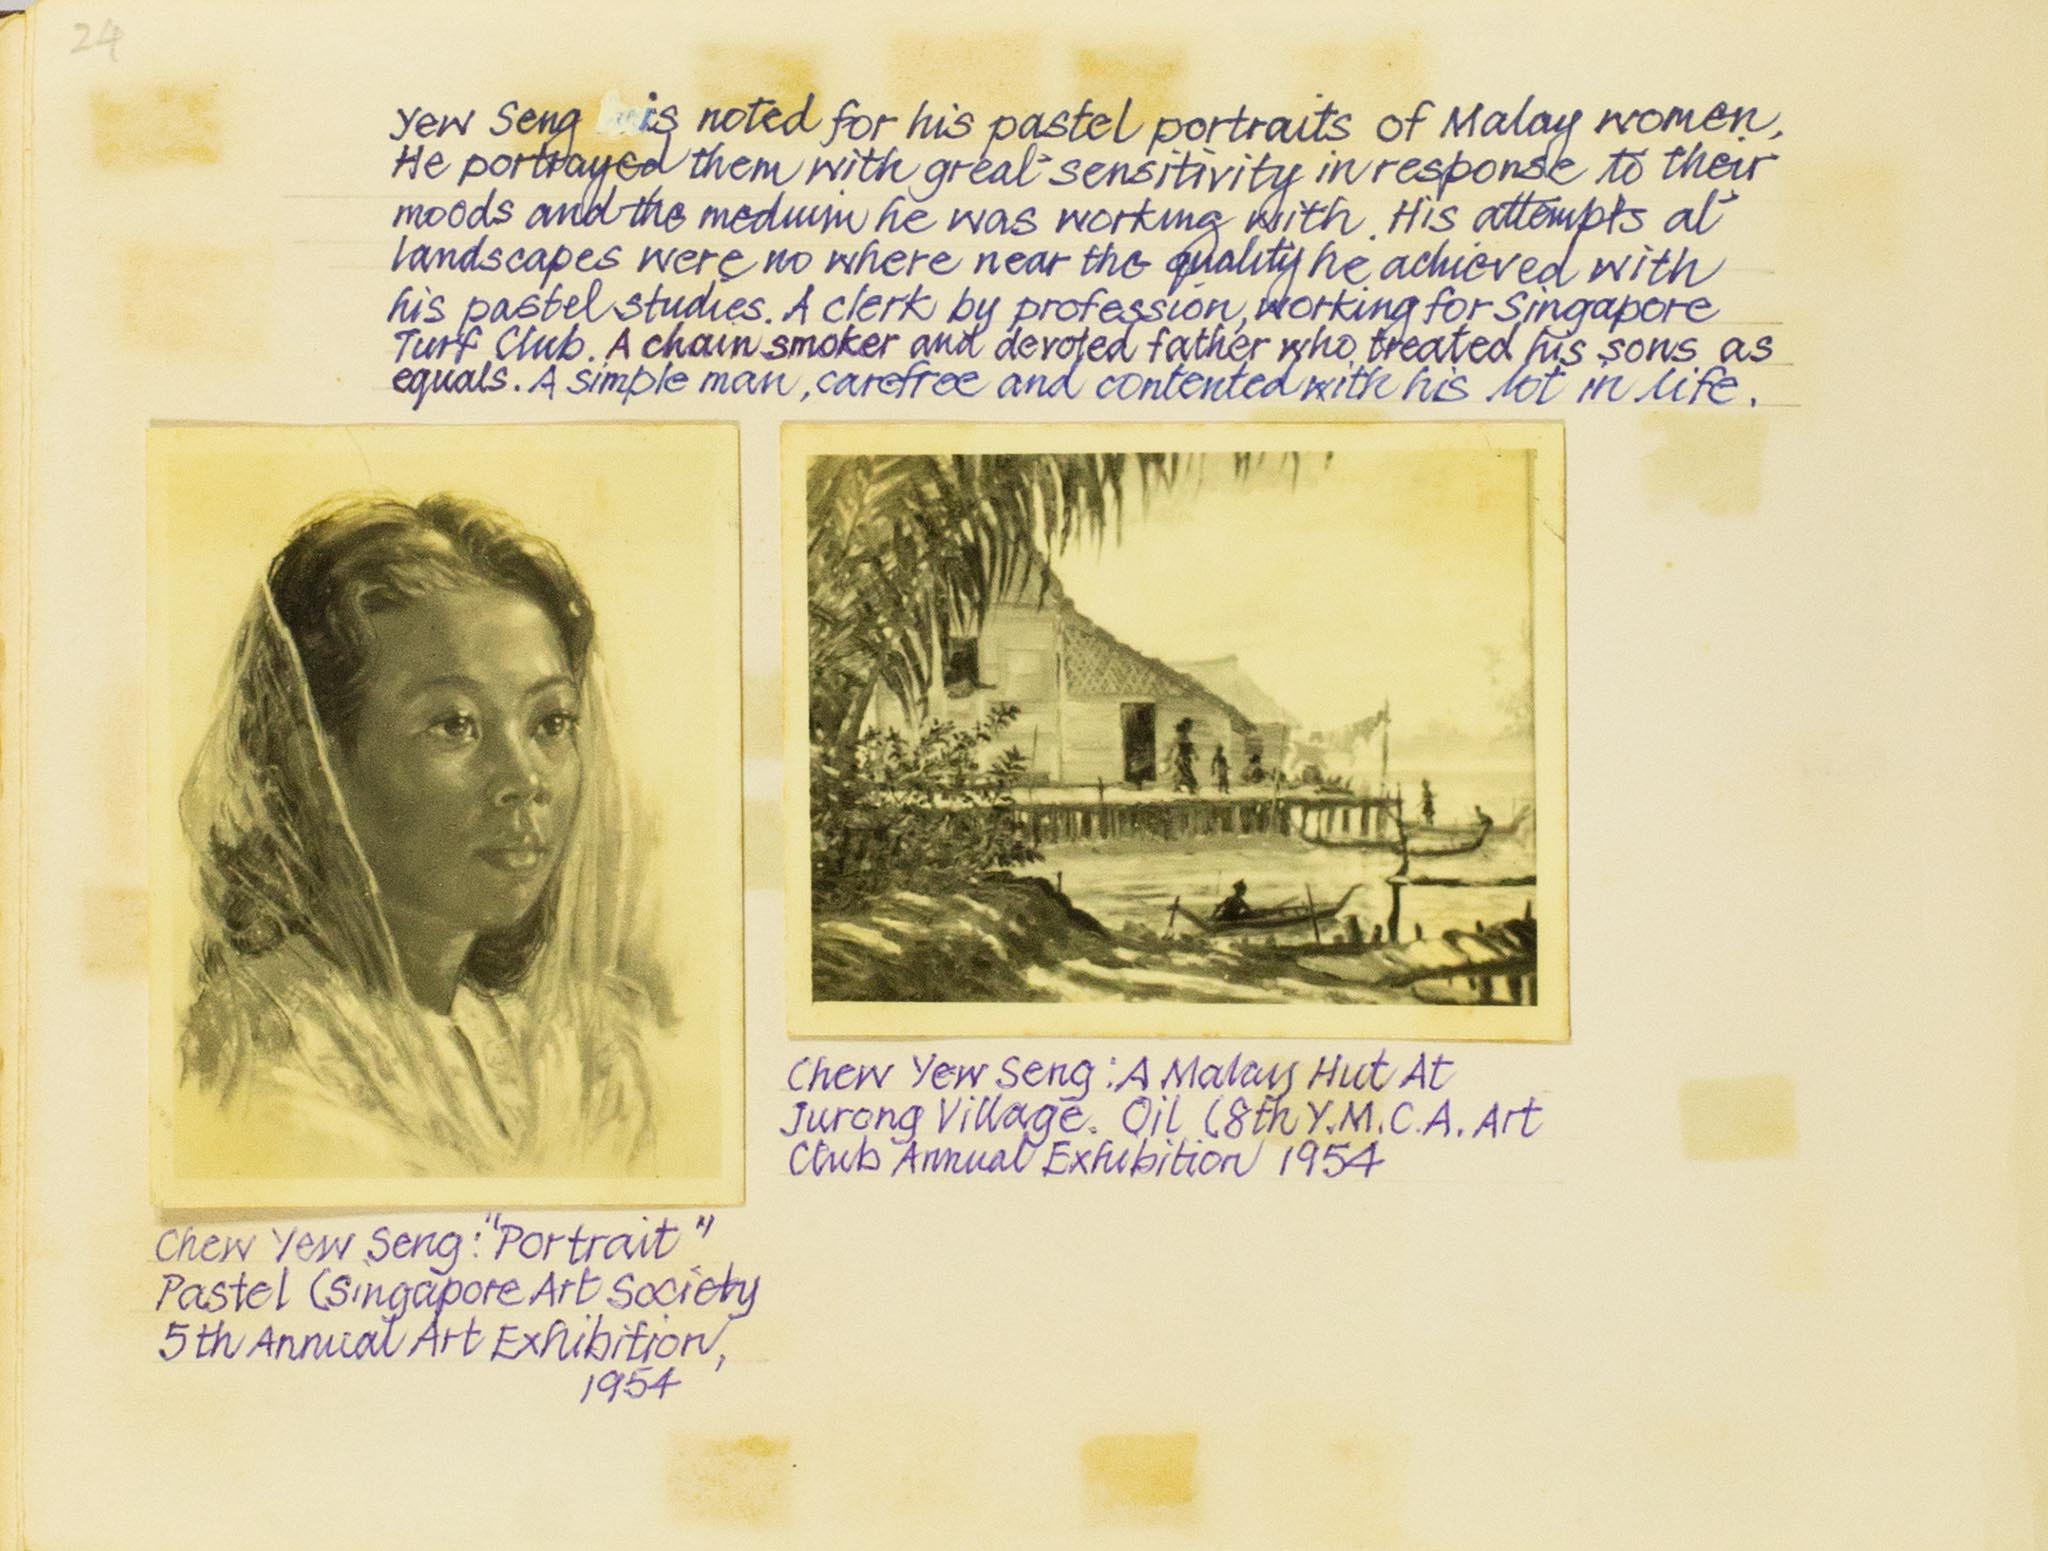 24
Yew Seng is noted for his pastel portraits of Malay women.
He portrayed them with great sensitivity in response to their
moods and the medium he was working with. His attempts at
landscapes were no where near the quality he achieved with
his pastel studies. A clerk by profession, working for Singapore
Turf Club. A chain smoker and devoted father who treated his sons as
equals. A simple man, carefree and contented with his lot in life.
Chew Yew Seng: A Malay Hut At
Jurong Village. Oil (8th Y.M.C.A. Art
Club Annual Exhibition 1954
Chew Yew Seng: "Portrait"
Pastel (Singapore Art Society
5th Annual Art Exhibition,
1954